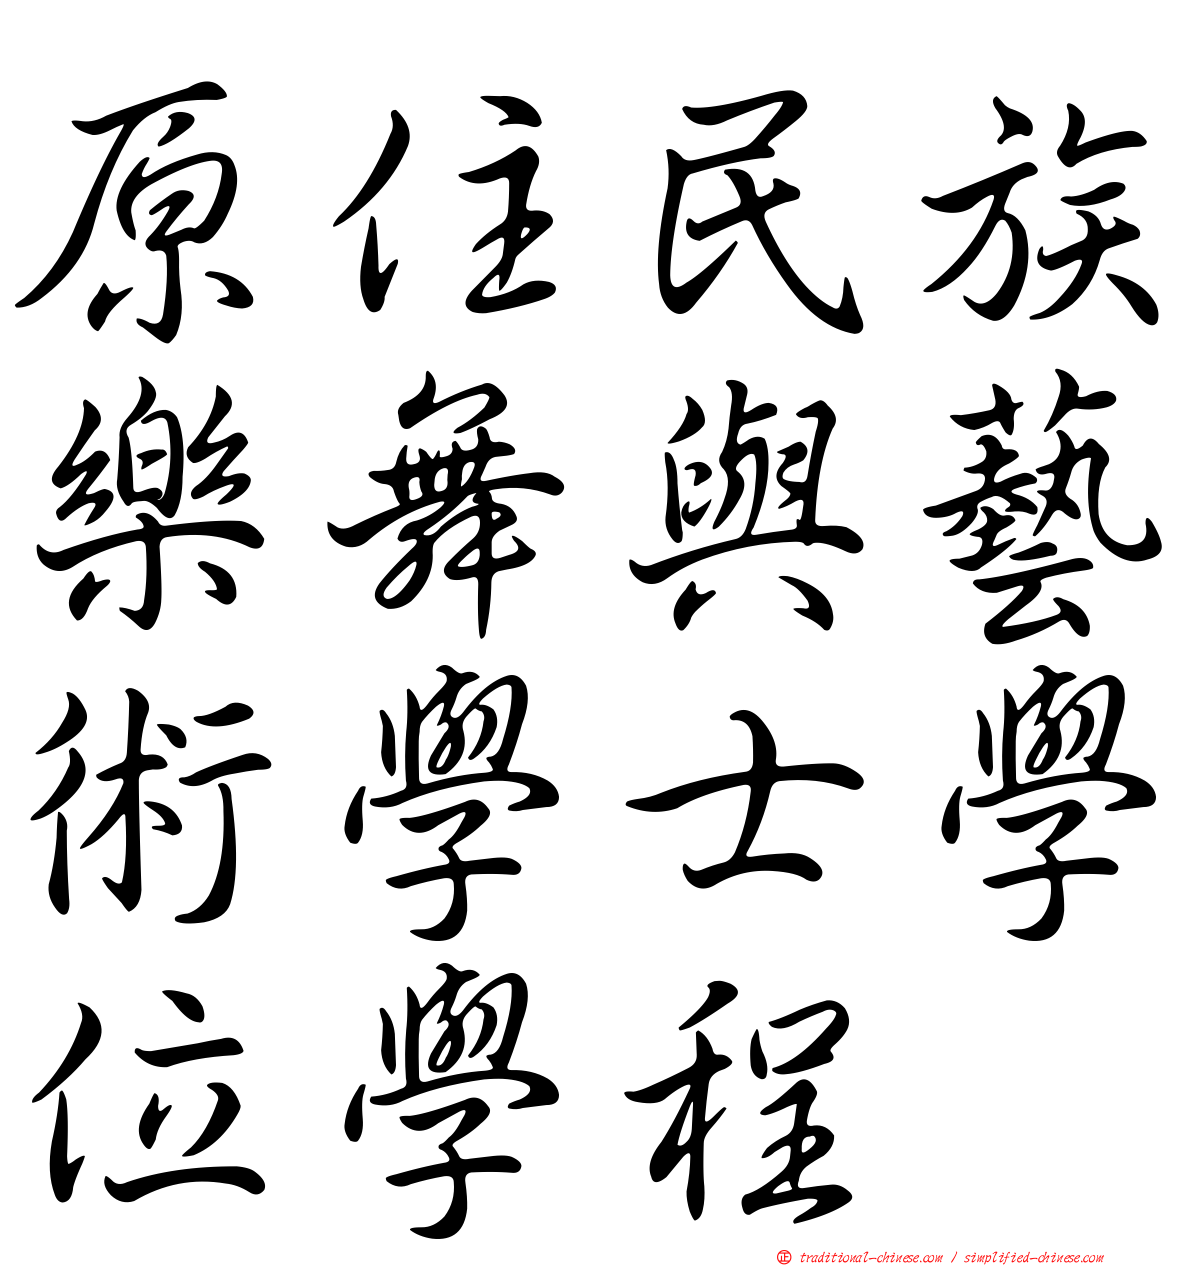 原住民族
樂舞與藝
術學士學
位學程
正 traditional-chinese.com / simplified-chinese.com